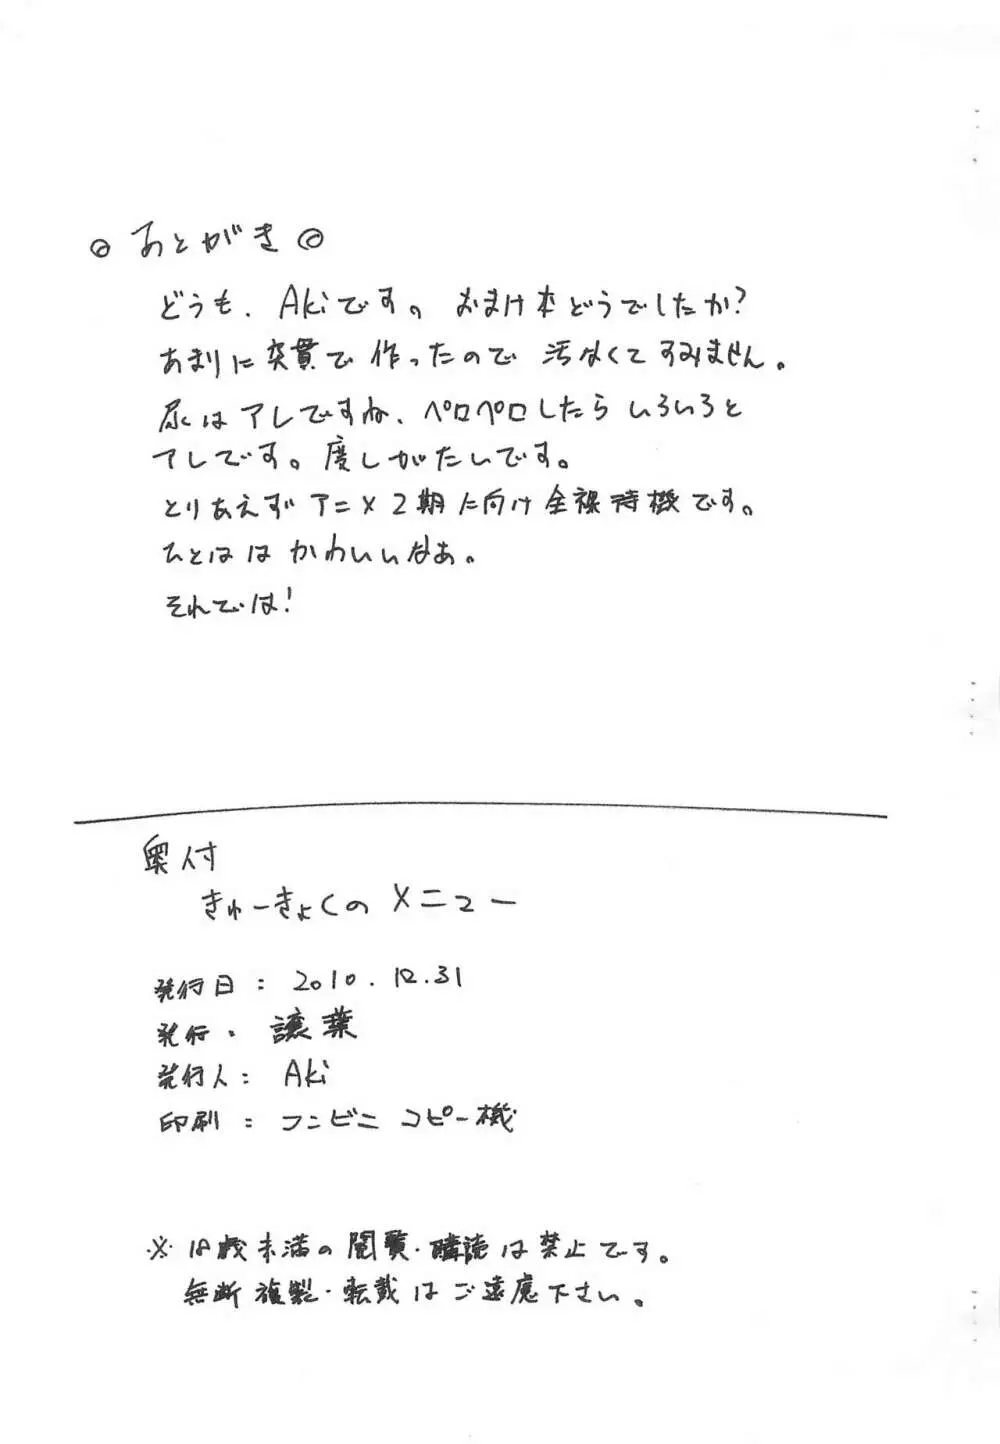 ◎ あとがき ◎
どうも、Akiです。おまけ本どうでしたか?
あまりに突貫で作ったので汚なくてすみません。
尿はアレですね、ペロペロしたらいろいろと
アレです。度しがたいです。
とりあえずアニメ2期に向け全裸待機です。
ひとははかわいいなあ。
それでは!
奥付
きゅーきょくのメニュー
発行日: 2010.12.31
発行: 譲葉
発行人: Aki
印刷: コンビニコピー機
※18歳未満の閲覧・購読は禁止です。
無断複製・転載はご遠慮下さい。